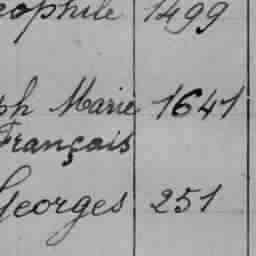 eophile 1499
ph Marie 1641
François
Georges 251